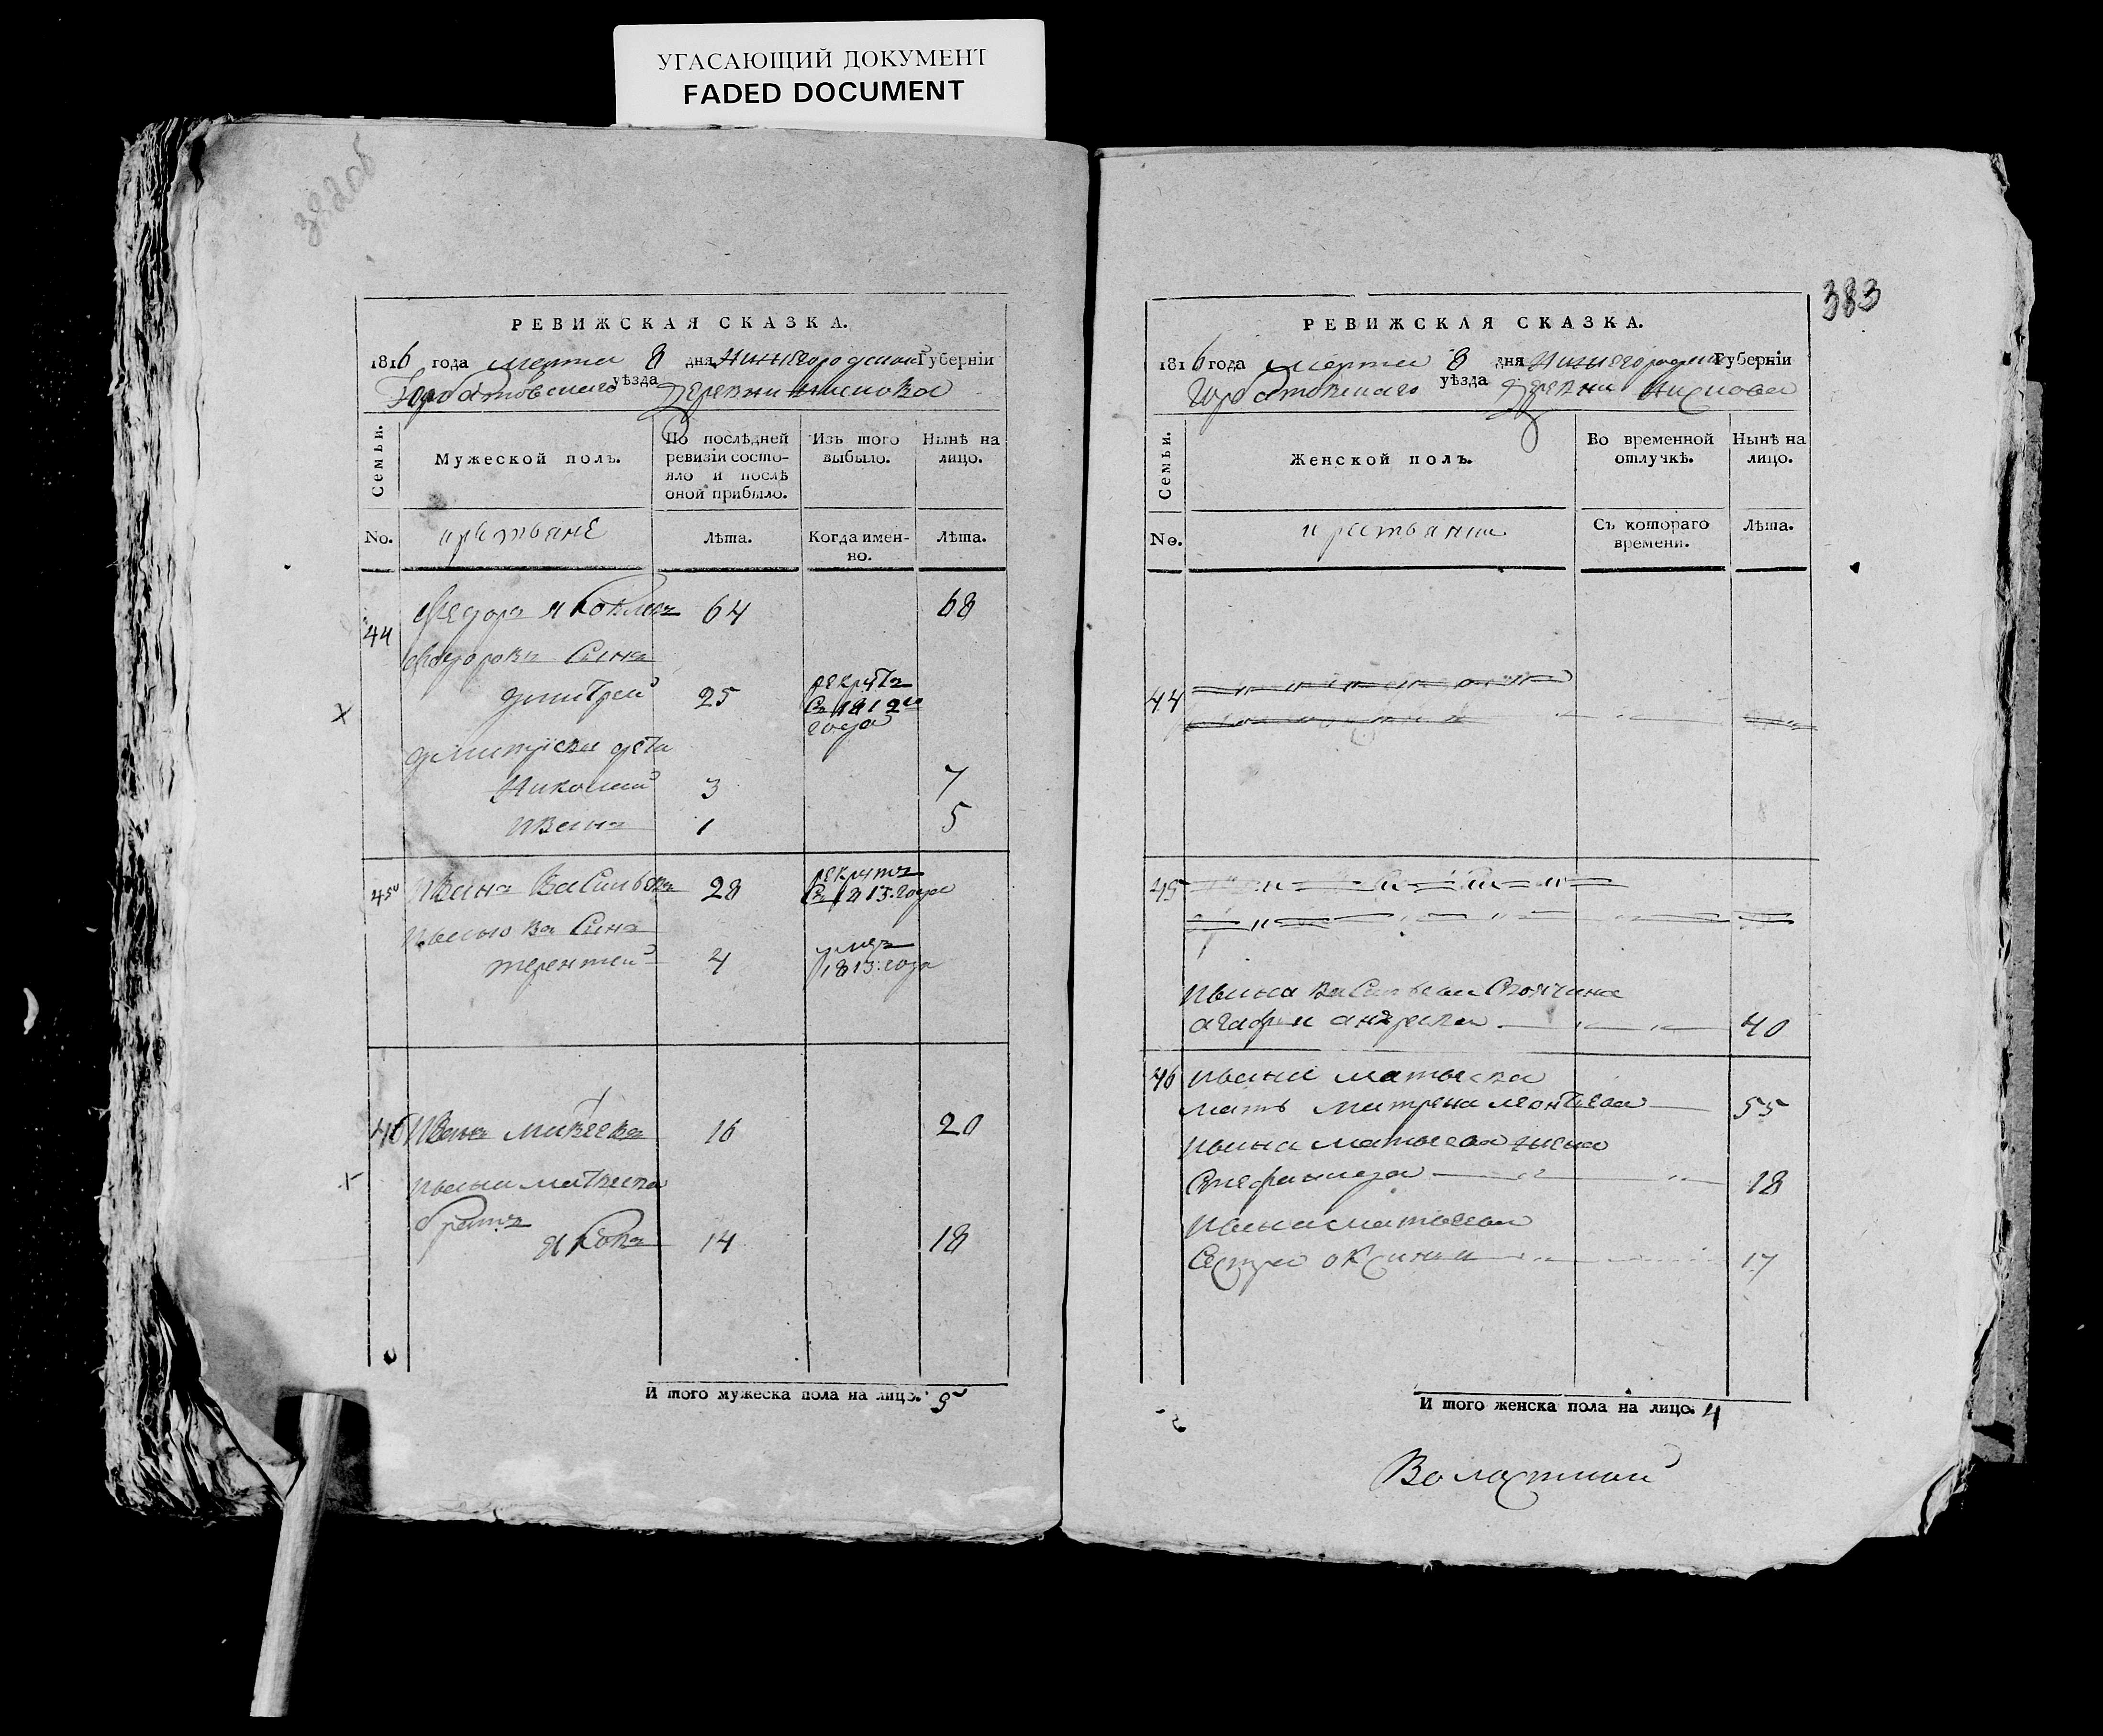 УГАСАЮЩИЙ ДОКУМЕНТ
FADED DOCUMENT
382об
РЕВИЖСКАЯ СКАЗКА.
1816 года марта 8 дня Нижегородской Губерніи
Горбатовскаго уѣзда деревни
Семьи.
Мужеской полъ.
По послѣдней ревизіи состояло и послѣ оной прибыло.
Изъ того выбыло.
Нынѣ на лицо.
No.
крестьяне
Лѣта.
Когда именно.
Лѣта.
44 Федоръ Яковлевъ 64 68
Федоровъ Сынъ
Дмитрей 25 рекрутъ
съ 1812го
года
Дмитріева дети
Николай 3 7
Иванъ 1 5
45 Иванъ Васильевъ 28 рекрутъ
съ 1813 года
Иванова Сынъ
терентей 4 умеръ
1813: года
46 Иванъ Матвеевъ 16 20
Ивана Матвеева
братъ
Яковъ 14 18
И того мужеска пола на лицо. 5
383
РЕВИЖСКАЯ СКАЗКА.
1816 года марта 8 дня Нижегородской Губерніи
Горбатовскаго уѣзда деревни
Семьи.
Женской полъ.
Во временной отлучкѣ.
Нынѣ на лицо.
No.
крестьянки
Съ котораго времени.
Лѣта.
44
45
Ивана Васильева
агафья андреева 40
46 Ивана матвева
мать матрена леонтьева 55
Ивана матвеева жена
Стефанида 18
Ивана матвеева
Сестра оксинья 17
И того женска пола на лицо. 4
Воластной